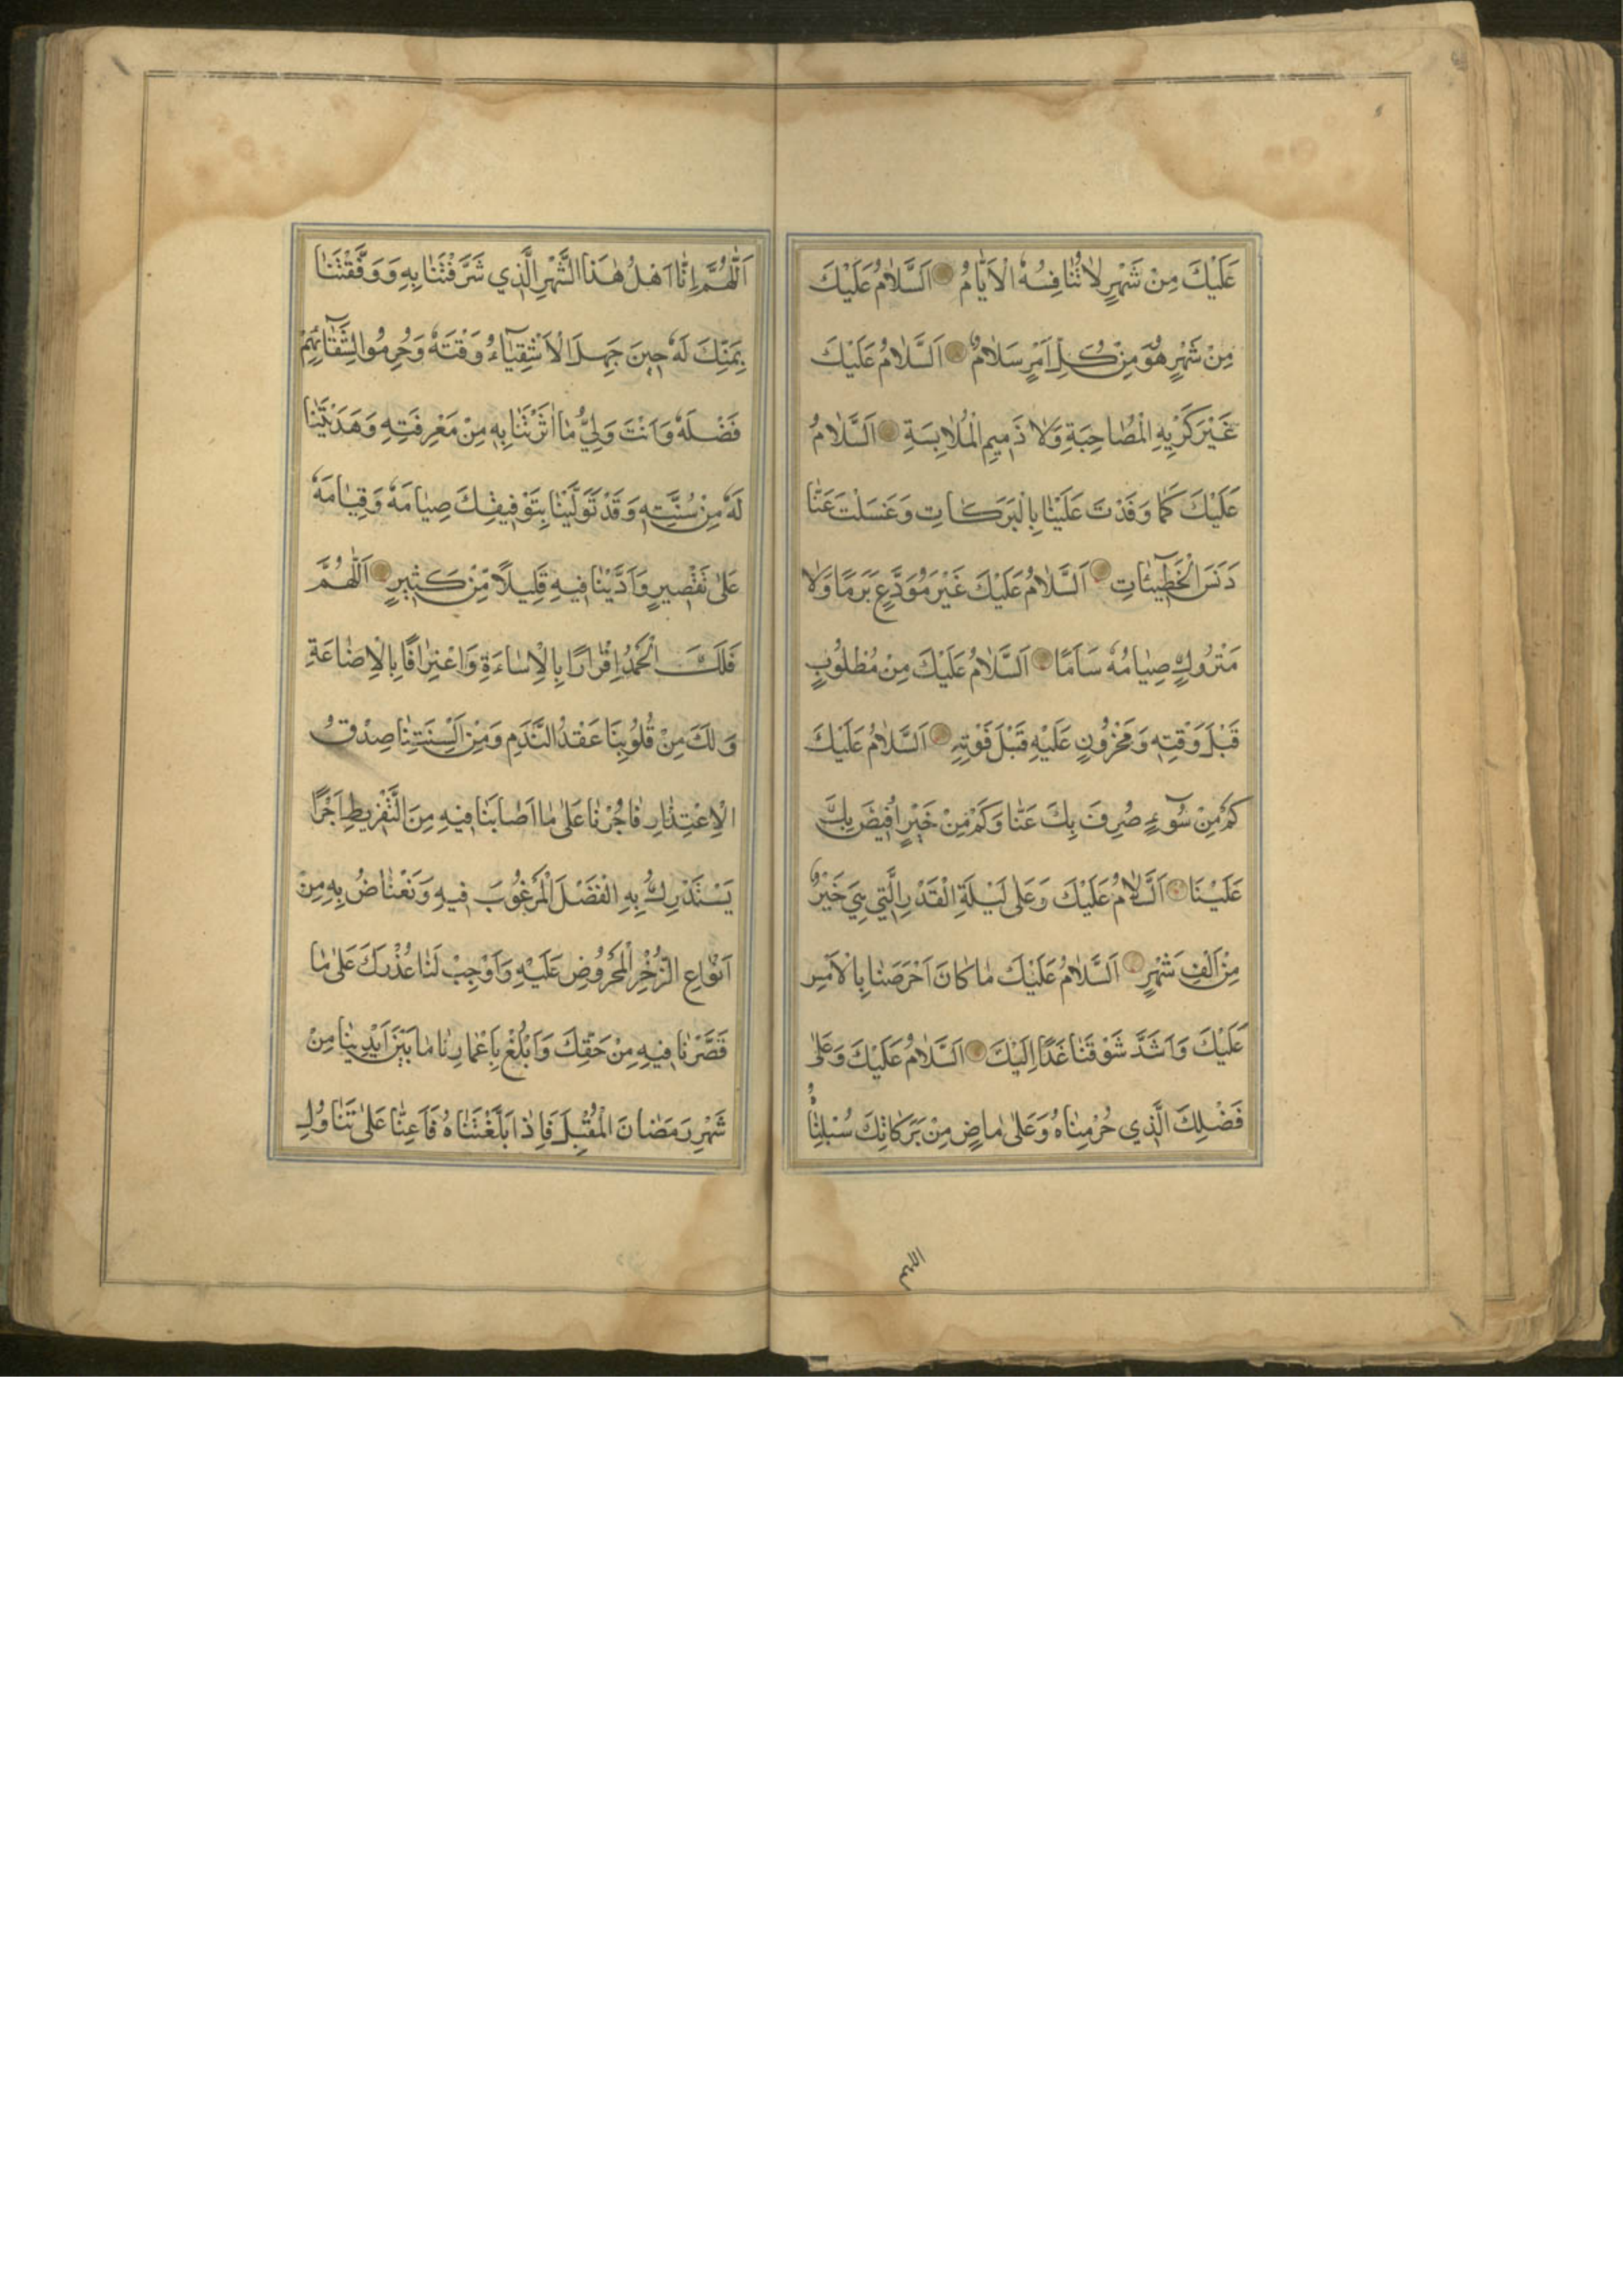 عَلَيْكَ مِنْ شَهْرٍ لَا تُنَافِسُهُ الْاَيَّامُ اَلسَّلَامُ عَلَيْكَ
مِنْ شَهْرٍ هُوَ مِنْ كُلِّ اَمْرٍ سَلَامٌ اَلسَّلَامُ عَلَيْكَ
غَيْرَ كَرِيهِ الْمُصَاحِبَةِ وَلَا ذَمِيمِ الْمُلَابِسَةِ اَلسَّلَامُ
عَلَيْكَ كَمَا وَفَدْتَ عَلَيْنَا بِالْبَرَكَاتِ وَغَسَلْتَ عَنَّا
دَنَسَ الْخَطِيئَاتِ اَلسَّلَامُ عَلَيْكَ غَيْرَ مُوَدَّعٍ بَرَمًا وَلَا
مَتْرُوكٍ صِيَامُهُ سَاَمًا اَلسَّلَامُ عَلَيْكَ مِنْ مَطْلُوبٍ
قَبْلَ وَقْتِهِ وَمَحْزُونٍ عَلَيْهِ قَبْلَ فَوْتِهِ اَلسَّلَامُ عَلَيْكَ
كَمْ مِنْ سُوۤءٍ صُرِفَ بِكَ عَنَّا وَكَمْ مِنْ خَيْرٍ اُفِيضَ بِكَ
عَلَيْنَا اَلسَّلَامُ عَلَيْكَ وَعَلَى لَيْلَةِ الْقَدْرِ الَّتِي هِيَ خَيْرٌ
مِنْ اَلْفِ شَهْرٍ اَلسَّلَامُ عَلَيْكَ مَا كَانَ اَحْرَصَنَا بِالْاَمْسِ
عَلَيْكَ وَاَشَدَّ شَوْقَنَا غَدًا اِلَيْكَ اَلسَّلَامُ عَلَيْكَ وَعَلَى
فَضْلِكَ الَّذِي حُرِمْنَاهُ وَعَلَى مَاضٍ مِنْ بَرَكَاتِكَ سُلِبْنَاهُ
اللهم
اَللّٰهُمَّ اِنَّا اَهْلُ هٰذَا الشَّهْرِ الَّذِي شَرَّفْتَنَا بِهِ وَوَفَّقْتَنَا
بِمَنِّكَ لَهُ حِينَ جَهِلَ الْاَشْقِيَاۤءُ وَقْتَهُ وَحُرِمُوا لِشَقَاۤئِهِمْ
فَضْلَهُ وَاَنْتَ وَلِيُّ مَا اٰثَرْتَنَا بِهِ مِنْ مَعْرِفَتِهِ وَهَدَيْتَنَا
لَهُ مِنْ سُنَّتِهِ وَقَدْ تَوَلَّيْنَا بِتَوْفِيقِكَ صِيَامَهُ وَقِيَامَهُ
عَلَى تَقْصِيرٍ وَاَدَّيْنَا فِيهِ قَلِيلًا مِنْ كَثِيرٍ اَللّٰهُمَّ
فَلَكَ الْحَمْدُ اِقْرَارًا بِالْاِسَاءَةِ وَاعْتِرَافًا بِالْاِضَاعَةِ
وَلَكَ مِنْ قُلُوبِنَا عَقْدُ النَّدَمِ وَمِنْ اَلْسِنَتِنَا صِدْقُ
الْاِعْتِذَارِ فَاْجُرْنَا عَلَى مَا اَصَابَنَا فِيهِ مِنَ التَّفْرِيطِ اَجْرًا
يَسْتَدْرِكُ بِهِ الْفَضْلَ الْمَرْغُوبَ فِيهِ وَنَعْتَاضُ بِهِ مِنْ
اَنْوَاعِ الذُّخْرِ الْمَحْرُوضِ عَلَيْهِ وَاَوْجِبْ لَنَا عُذْرَكَ عَلَى مَا
قَصَّرْنَا فِيهِ مِنْ حَقِّكَ وَابْلُغْ بِاَعْمَارِنَا مَا بَيْنَ اَيْدِينَا مِنْ
شَهْرِ رَمَضَانَ الْمُقْبِلِ فَاِذَا بَلَّغْتَنَاهُ فَاَعِنَّا عَلَى تَنَاوُلِ